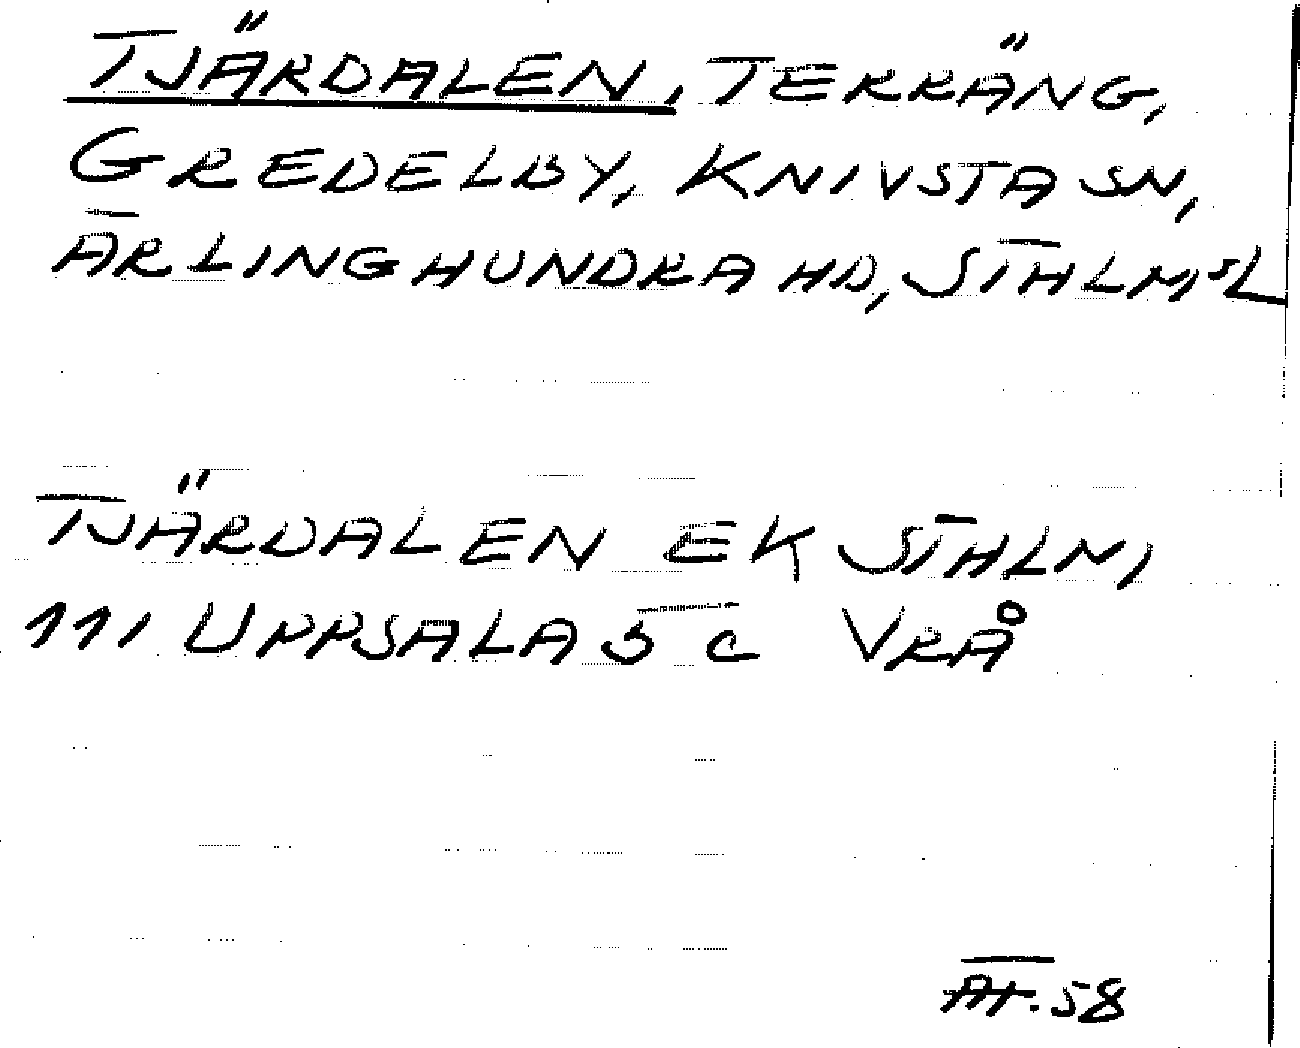 TJÄRDALEN, TERRÄNG,
GREDELBY, KNIVSTA SN,
ÄRLINGHUNDRA HD, STHLMSL
TJÄRDALEN EK STHLM,
111 UPPSALA 5 C VRÅ
AT. 58